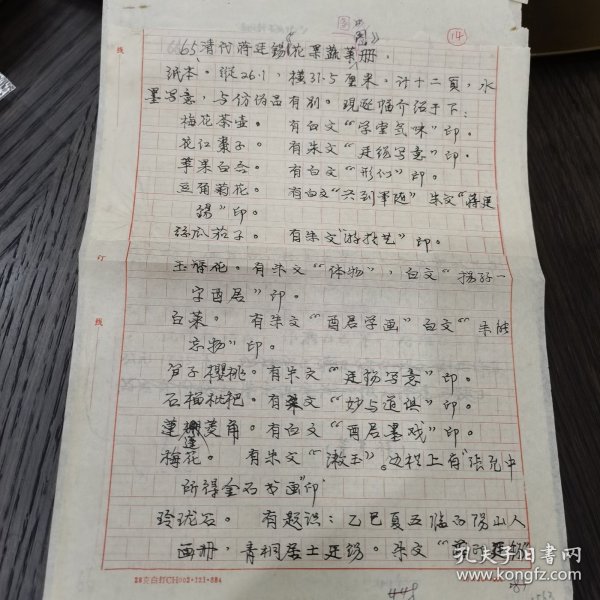 14
65 清代蒋廷锡《花果蔬菜图册》
纸本。纵26.1，横31.5厘米。计十二页，水
墨写意，与仿伪品有别。现逐幅介绍于下：
梅花茶壶。 有白文“学堂气味”印。
花红枣子。 有朱文“廷锡写意”印。
苹果百合。 有白文“形似”印。
豆角菊花。 有白文“兴到笔随” 朱文“蒋廷
锡”印。
丝瓜茄子。 有朱文“游于艺”印。
玉簪花。有朱文“体物”，白文“扬孙一
字酉居”印。
白菜。 有朱文“酉居学画”白文“未能
忘物”印。
笋子樱桃。有朱文“廷锡写意”印。
石榴枇杷。有朱文“妙与道俱”印。
莲蓬菱角。有白文“酉居墨戏”印。
梅花。 有朱文“漱玉”。边栏上有“张允中
所得金石书画”印
玲珑石。 有题识：乙巳夏五临石阳山人
画册，青桐居士廷锡。朱文“廷锡”
线
订
线
448
孔夫子旧书网
kongfz.com